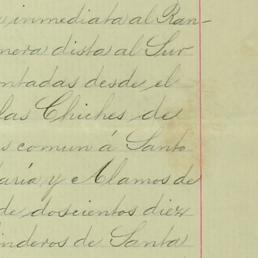 inmediata al Ran-
nera dista al Sur
ntadas desde el
las Chiches de
s comun á Santo
aría y Alamos de
de doscientos diez
inderos de Santa